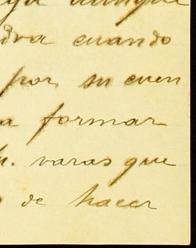 aunque
dra cuando
por su cuen
a formar
varas que
de hacer